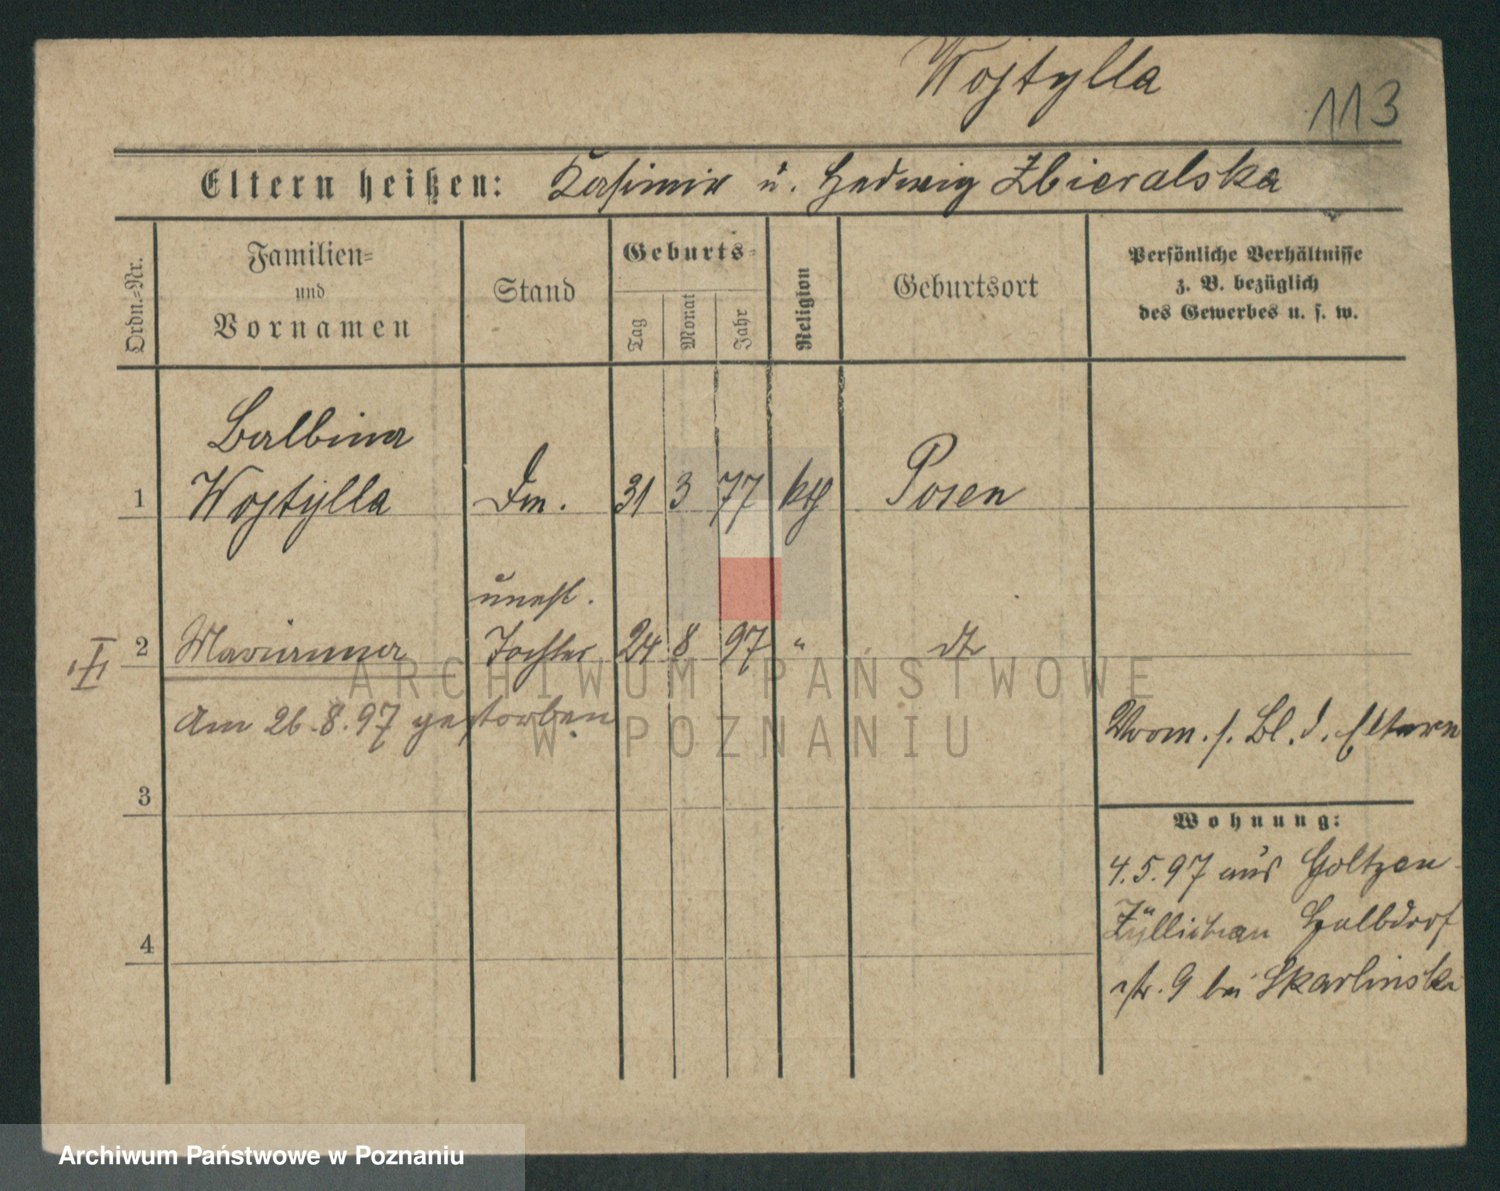 Wojtylla
113
Eltern heißen: Kasimir u. Hedwig Zbieralska
Ordn.=Nr.
Familien=
und
Vornamen
Stand
Geburts=
Tag
Monat
Jahr
Religion
Geburtsort
Persönliche Verhältnisse
z. B. bezüglich
des Gewerbes u. s. w.
Balbina
1 Wojtylla Dm. 31 3 77 kth Posen
unehl.
2 Marianna Tochter 24 8 97 " dt
Am 26.8.97 gestorben
Vorm. s. Bl. d. Eltern
3
Wohnung:
4.5.97 aus Goltzen
Züllichau Halbdorf
str. 9 bei Skarlinski
4
ARCHIWUM PAŃSTWOWE
W POZNANIU
Archiwum Państwowe w Poznaniu